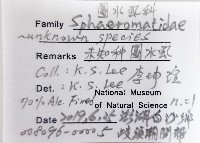 團水虱科
Family Sphaeromatidae
unknown species
Remarks 未知種團水虱
Coll.: K.S. Lee 李坤瑄
Det.: K.S. Lee
70% Alc. Fixed National Museum of Natural Science n.=1
Date 2019.6.25 澎湖
008096-00005